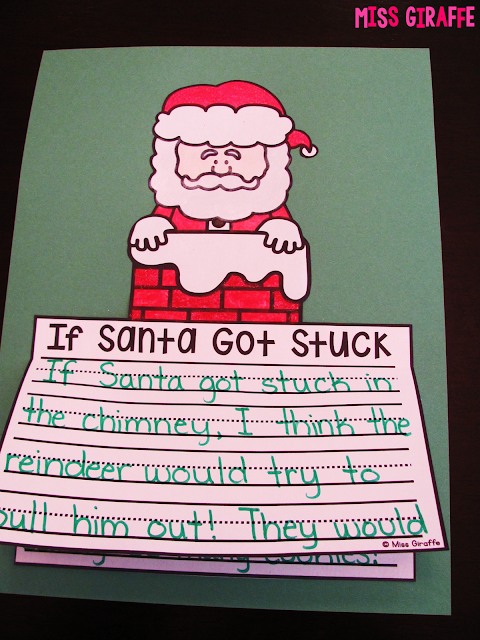 MISS GIRAFFE
If Santa Got Stuck
If Santa got stuck in
the chimney, I think the
reindeer would try to
pull him out! They would
© Miss Giraffe
cookies!